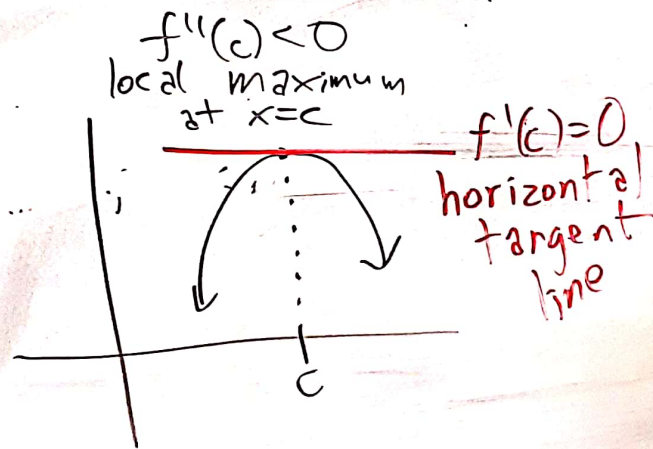 f''(c)<0
local maximum
at x=c
f'(c)=0
horizontal
tangent
line
c